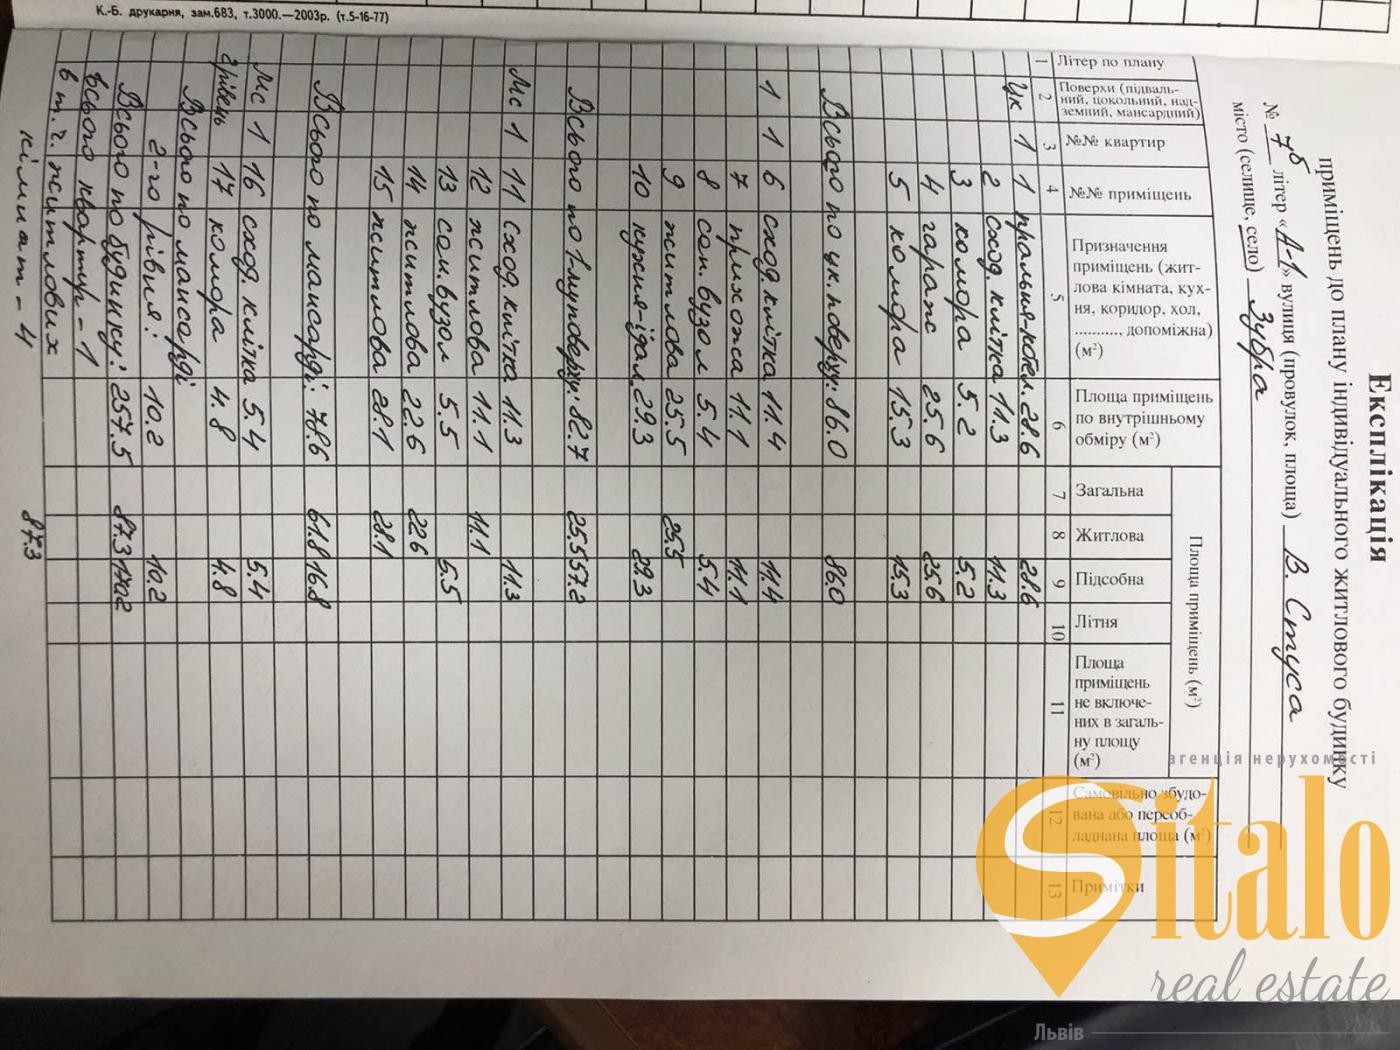 Експлікація
приміщень до плану індивідуального житлового будинку
№ 7б літер «А-1» вулиця (провулок, площа) В. Стуса
місто (селище, село) Зубра
Літер по плану
Поверхи (підваль-
ний, цокольний, над-
земний, мансардний)
№№ квартир
№№ приміщень
Призначення
приміщень (жит-
лова кімната, кух-
ня, коридор, хол,
..........., допоміжна)
(м²)
Площа приміщень
по внутрішньому
обміру (м²)
Площа приміщень (м²)
Загальна
Житлова
Підсобна
Літня
Площа
приміщень
не включе-
них в загаль-
ну площу
(м²)
Самовільно збудо-
вана або переоб-
ладнана площа (м²)
Примітки
1 2 3 4 5 6 7 8 9 10 11 12 13
Цк 1 1 пральня-котел. 28.6 28.6
2 сход. клітка 11.3 11.3
3 комора 5.2 5.2
4 гараж 25.6 25.6
5 комора 15.3 15.3
Всього по цк. поверху: 86.0 86.0
1 1 6 сход. клітка 11.4 11.4
7 прихожа 11.1 11.1
8 сан. вузол 5.4 5.4
9 житлова 25.5 25.5
10 кухня-їдал. 29.3 29.3
Всього по 1му поверху: 82.7 25.5 57.2
Мс 1 11 сход. клітка 11.3 11.3
12 житлова 11.1 11.1
13 сан. вузол 5.5 5.5
14 житлова 22.6 22.6
15 житлова 28.1 28.1
Всього по мансарді: 78.6 61.8 16.8
Мс 1 16 сход. клітка 5.4 5.4
2 рівень 17 комора 4.8 4.8
Всього по мансарді
2-го рівня: 10.2 10.2
Всього по будинку: 257.5 87.3 170.2
Всього квартир - 1
в т. ч. житлових
кімнат - 4 87.3
К.-Б. друкарня, зам.683, т.3000.—2003р. (т.5-16-77)
агенція нерухомості
Sitalo
real estate
Львів